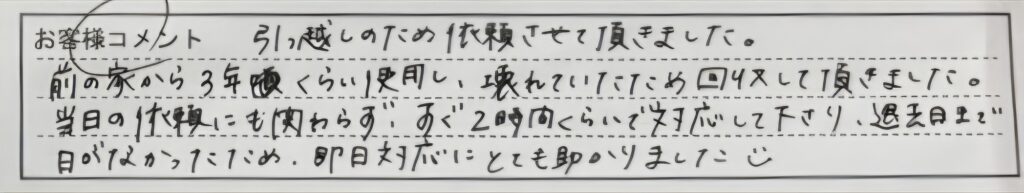 お客様コメント 引っ越しのため依頼させて頂きました。
前の家から3年くらい使用し、壊れていたため回収して頂きました。
当日の依頼にも関わらず、すぐ2時間くらいで対応して下さり、退去日まで
日がなかったため、即日対応にとても助かりました